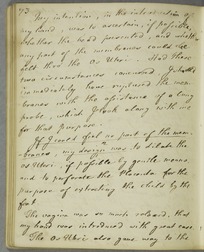 73
My intention, in the introduction of
my hand, was to ascertain, if possible,
whether the head presented, and whether
any part of the membranes could be
felt thro' the Os Uteri. Had these
two circumstances concurred I should
immediately have ruptured the mem-
branes with the assistance of a long
probe, which I took along with me
for that purpose.
If I could feel no part of the mem-
branes, my design was to dilate the
os Uteri, if possible by gentle means
and to perforate the Placenta for the
purpose of extracting the child by the
feet.
The vagina was so much relaxed, that
my hand was introduced with great ease.
The Os Uteri also gave way to the